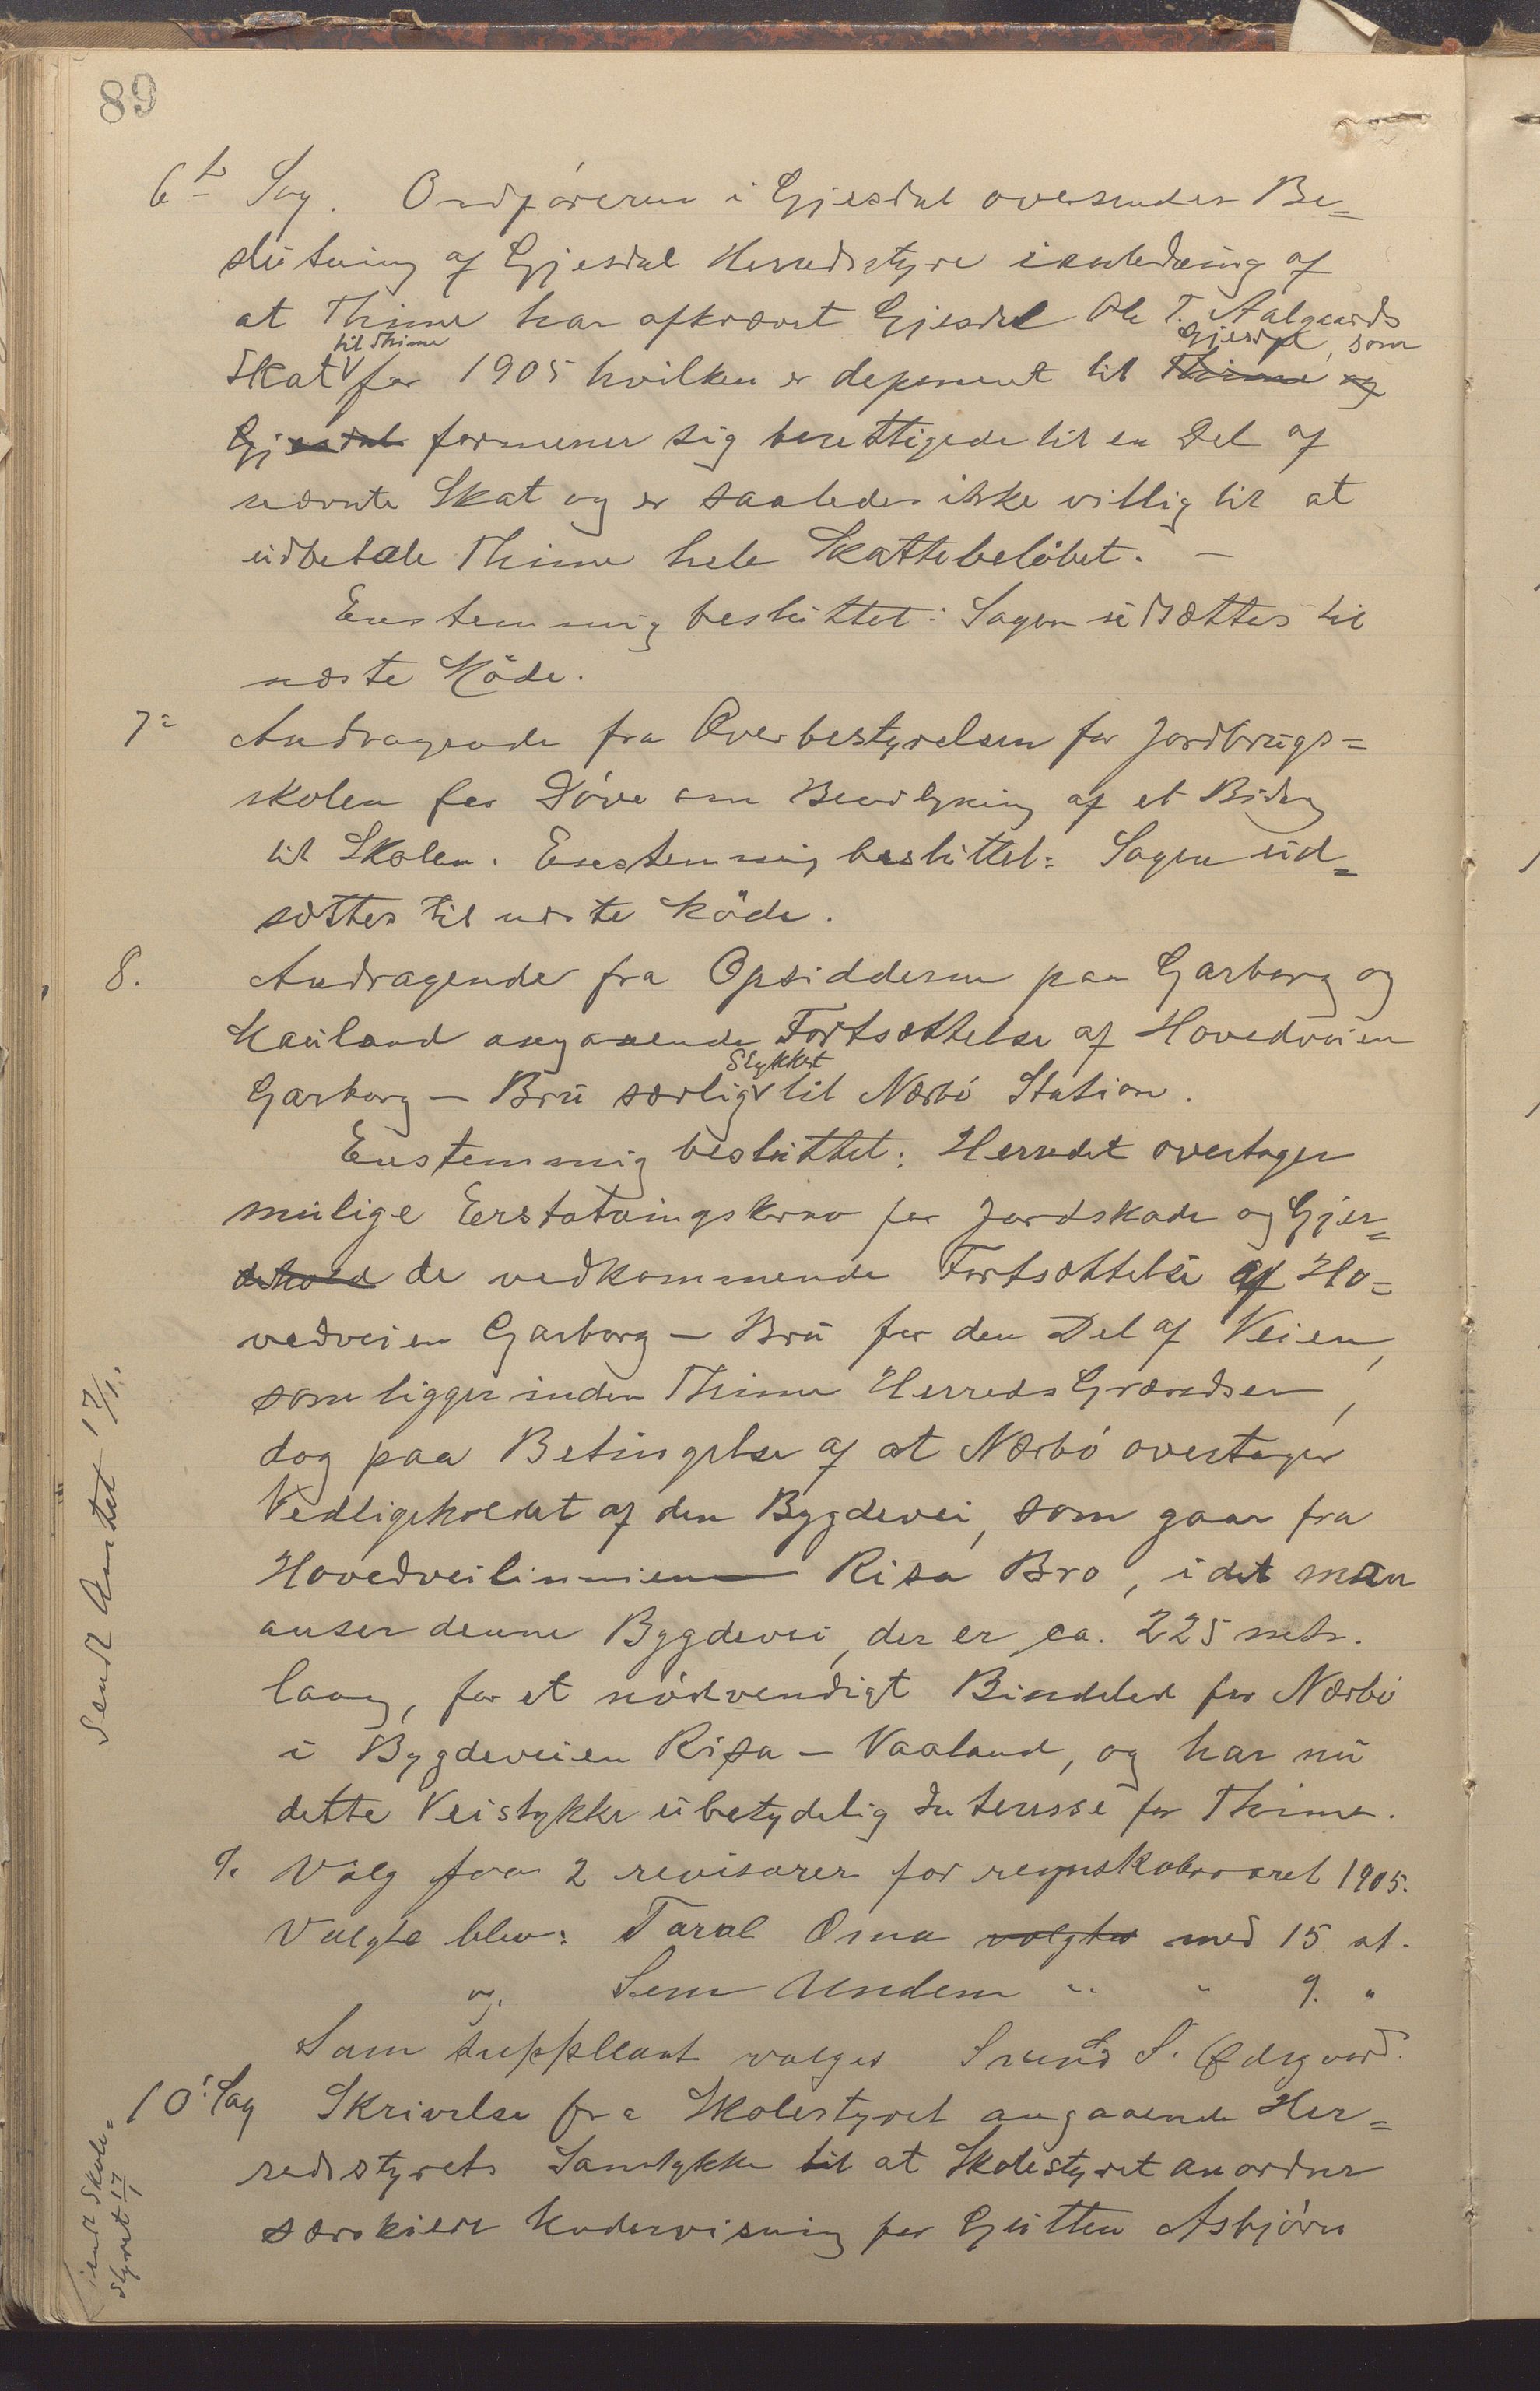 89
6te Sag. Ordføreren i Gjesdal oversender Be=
slutning af Gjesdal Herredsstyre i anledning af
at Thime har afkrævet Gjesdal Ole T. Aalgaards
til Thime Gjesdal, som
Skat for 1905 hvilken er deponeret til Thime og
Gjesdal formener sig berettigede til en Del af
nævnte Skat og er saaledes ikke villig til at
udbetale Thime hele Skattebeløbet. –
Enstemmig besluttet: Sagen udsættes til
næste Møde.
7= Andragende fra Overbestyrelsen for Jordbrugs=
skolen for Døve om Bevilgning af et Bidrag
til Skolen. Enstemmig besluttet: Sagen ud=
sættes til næste Møde.
8. Andragende fra Opsidderne paa Garborg og
Hauland angaaende Fortsættelse af Hovedveien
Stykket
Garborg – Bru særlig til Nærbø Station.
Enstemmig besluttet: Herredet overtager
mulige Erstatningskrav for Jordskade og Gjer=
dehold de vedkommende Fortsættelse af Ho=
vedveien Garborg – Bru for den Del af Veien,
som ligger inden Thime Herreds Grændser,
dog paa Betingelse af at Nærbø overtager
Vedligeholdet af den Bygdevei, som gaar fra
Hovedveilinnien Risa Bro, idet man
anser denne Bygdevei, der er ca. 225 metr.
lang, for et nødvendigt Bindeled for Nærbø
i Bygdeveien Risa – Vaaland, og har nu
dette Veistykke ubetydelig Interesse for Thime.
Sendt Amtet 17/1.
9. Valg paa 2 revisorer for regnskabsaaret 1905.
Valgte blev: Taral Oma valgtes med 15 st.
og Sem Undem " " 9. "
Som suppleant valges Svend S. Ødegaard.
10: Sag Skrivelse fra Skolestyret angaaende Her=
redsstyrets Samtykke til at Skolestyret anordner
særskilt Undervisning for Gutten Asbjørn
Sendt Skole=
styret 17/1